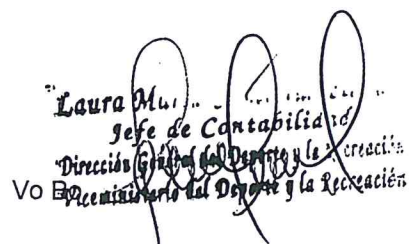 Laura
Jefe de Contabilidad
Dirección General del Deporte y la Recreación
Vo Bo Viceministerio del Deporte y la Recreación